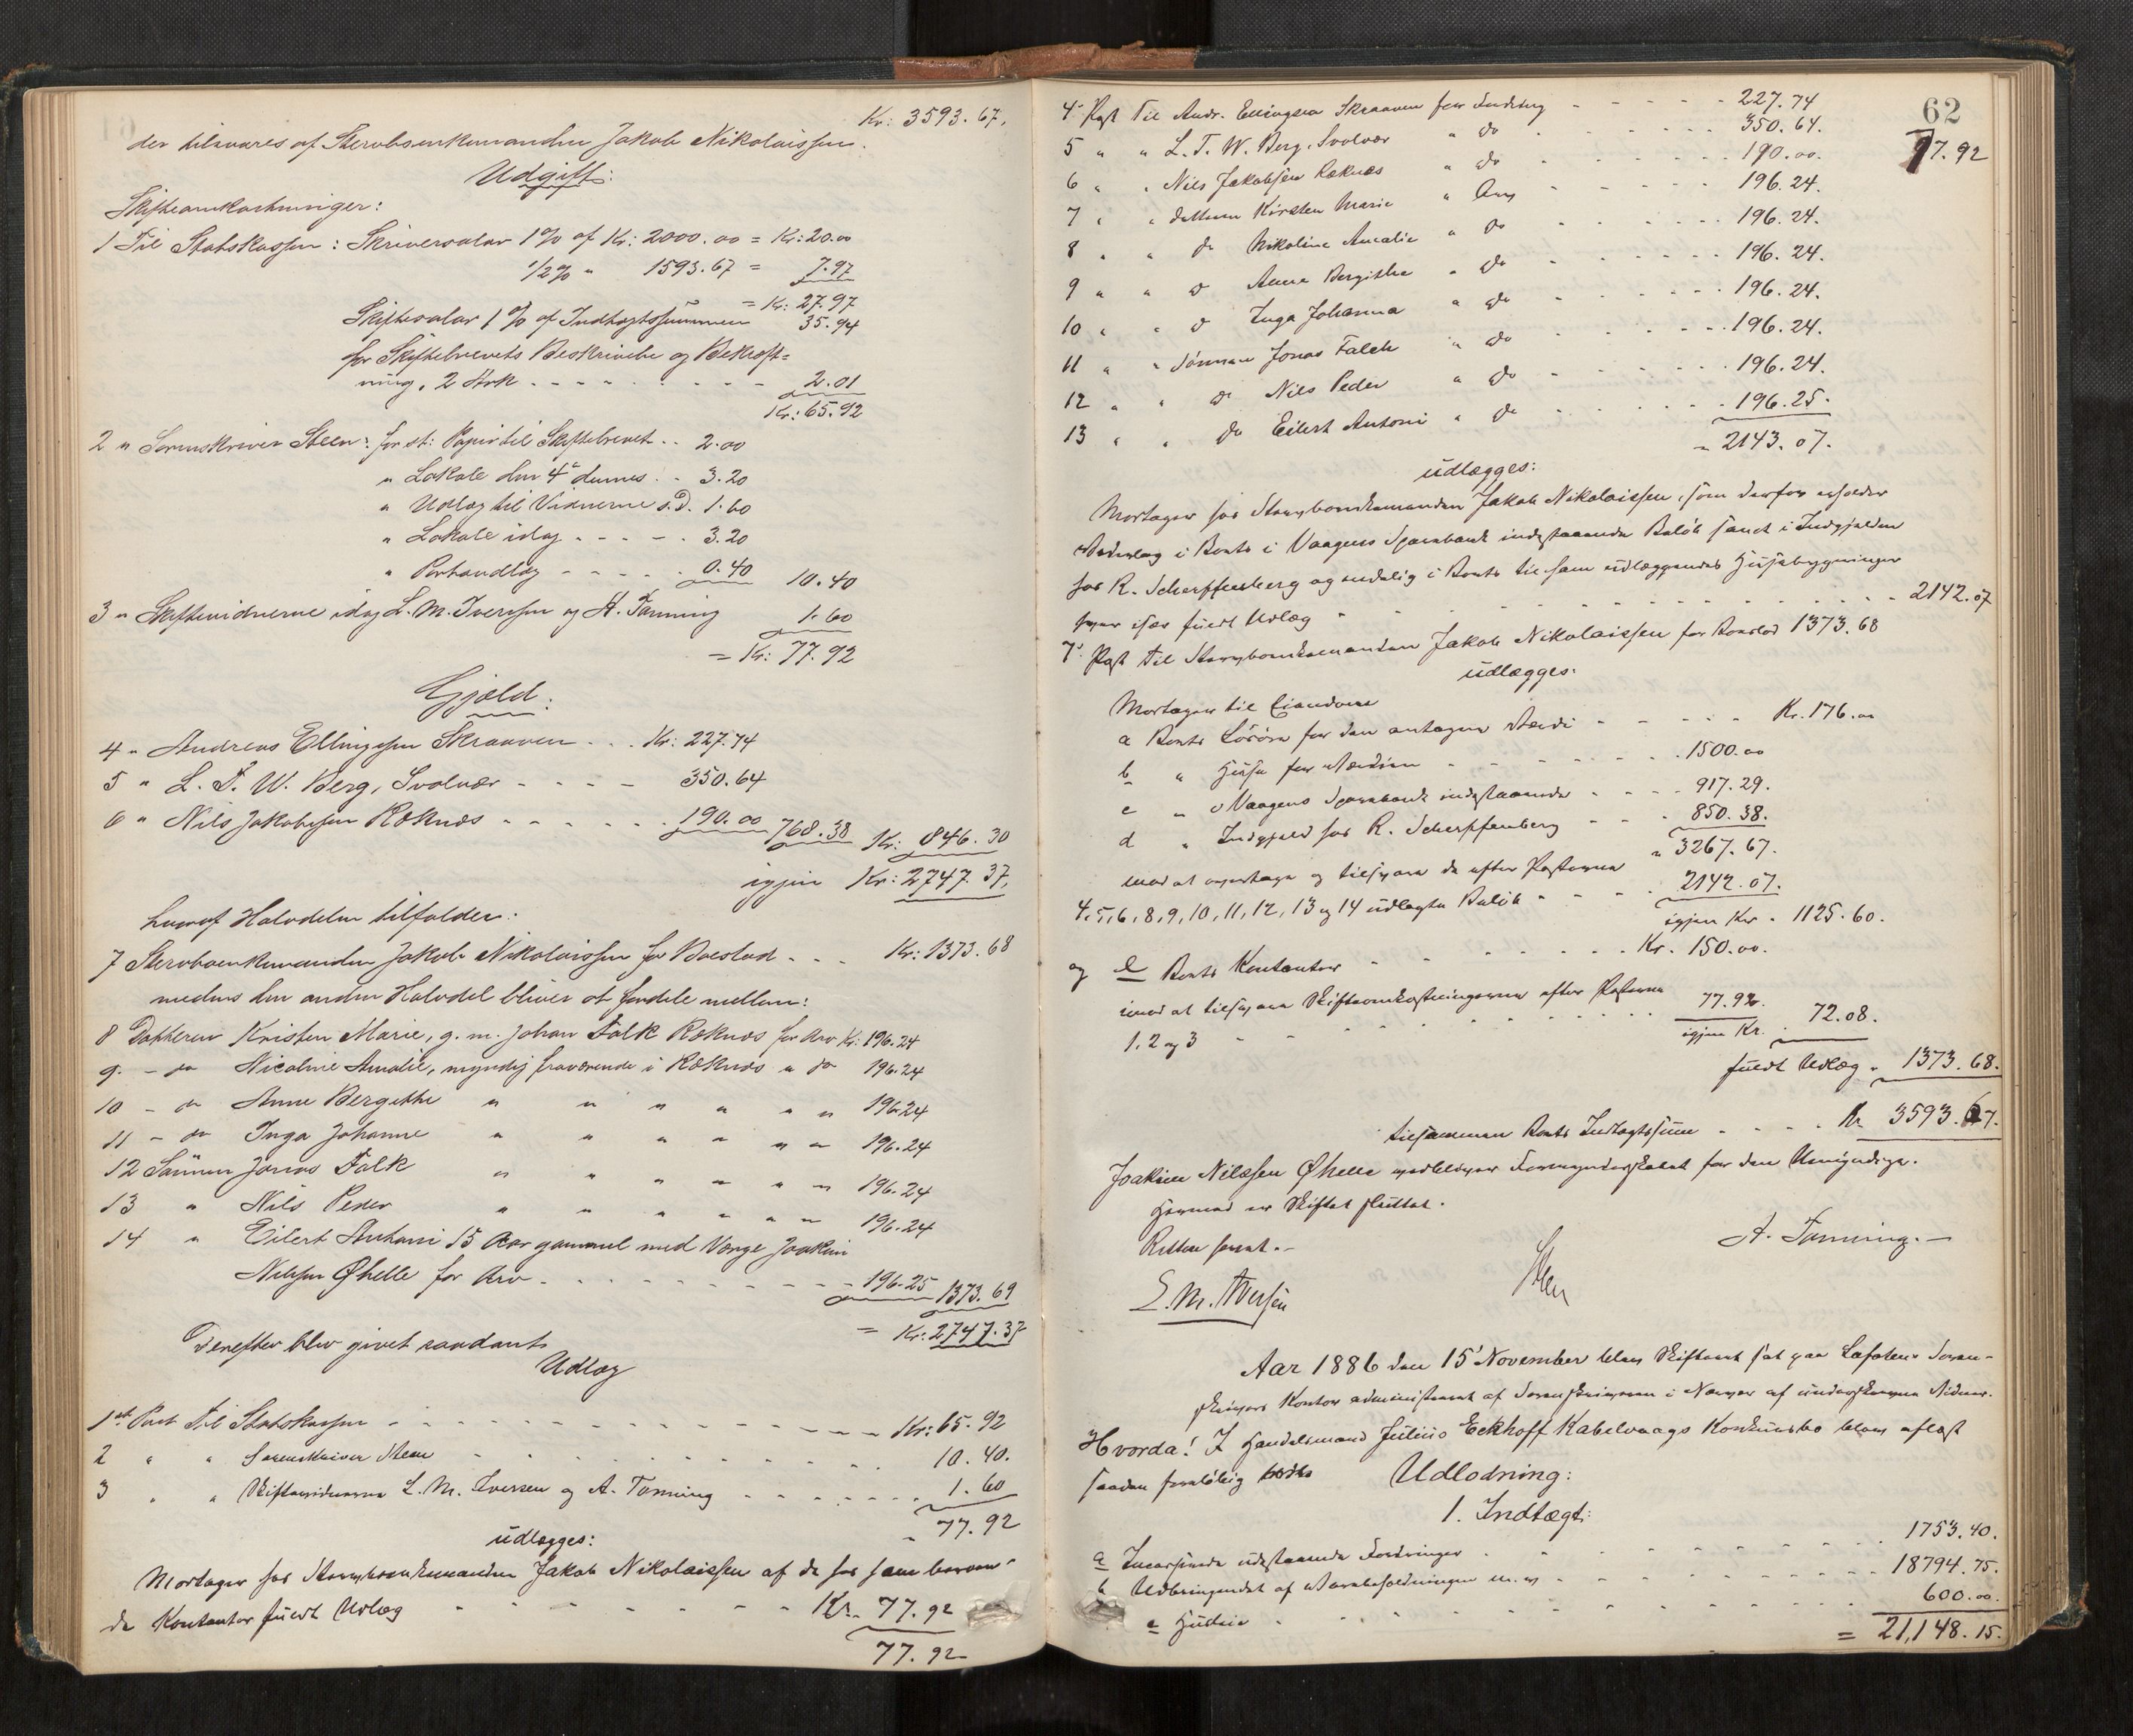 Kr: 3593.67.
der tilsvares af Stervboenkemanden Jakob Nikolaissen.
Udgift:
Skifteomkostninger:
1 Til Statskassen: Skriversalar 1 % af Kr: 2000.00 = Kr: 20.00
1/2 % " 1593.67 = 7.97
= Kr: 27.97
Skiftesalar 1 % af Indtægtssummen 35.94
for Skiftebrevets Beskrivelse og Bekræft=
ning, 2 Ark 2.01
Kr: 65.92
2 " Sorenskriver Steen: for st: Papir til Skiftebrevet 2.00
" Lokale den 4de dennes 3.20
" Udlæg til Vidnerne s.D. 1.60
" Lokale idag 3.20
" Forhandlag 0.40 10.40
3 " Skiftevidnerne idag L. M. Iverssen og A. Tønning 1.60
= Kr: 77.92
Gjæld:
4 " Andreas Ellingsen Skraaven Kr: 227.74
5 " L. T. W. Berg, Svolvær 350.64
6 " Nils Jakobsen Røknæs 190.00 768.38 Kr: 846.30
igjen Kr: 2747.37.
hvoraf Halvdelen tilfalder:
7 Stervboenkemanden Jakob Nikolaissen for Boeslod Kr: 1373.68
medens den anden Halvdel bliver at fordele mellem:
8 Datteren Kristen Marie, g. m. Johan Falk Røknæs for Arv Kr: 196.24
9 - do Nicoline Amalie, myndig fraværende i Røknæs " do 196.24
10 - do Anne Bergitthe " " " " " " 196.24
11 - do Inga Johanne " " " " " " 196.24
12 Sønnen Jonas Falk " " " " " 196.24
13 " Nils Peder " " " " " " 196.24
14 " Eilert Anthoni 15 Aar gammel med Værge Joakim
Nilssen Øhelle for Arv 196.25 1373.69
= Kr: 2747.37
Derefter blev givet saadant
Udlæg
1st Post Til Statskassen Kr: 65.92
2 " " Sorenskriver Steen 10.40.
3 " " Skiftevidnerne L. M. Iversen og A. Tønning 1.60
" 77.92
udlægges:
Modtager hos Stervboenkemanden Jakob Nikolaissen af de hos ham beroen-
de Kontanter fuldt Udlæg Kr. 77.92
77.92
62
77.92
4de Post Til Andr. Ellingsen Skraaven for Fordring 227.74
5 " " L. T. W. Berg, Svolvær " do 350.64.
6 " " Nils Jakobsen Røknæs " do 190.00.
7 " " datteren Kirsten Marie " Arv 196.24.
8 " " do Nikoline Amalie " do 196.24.
9 " " do Anne Bergithe " do 196.24.
10 " " do Inga Johanna " do 196.24.
11 " " Sønnen Jonas Falch " do 196.24.
12 " " do Nils Peder " do 196.24.
13 " " do Eilert Antoni " do 196.25.
" 2143.07.
udlægges:
Modtager hos Stervboenkemanden Jakob Nikolaissen, som derfor erholder
Vederlag i Boets i Vaagens Sparebank indestaaende Beløb samt i Indgjælden
hos R. Scherffenberg og endelig i Boets til ham udlæggendes Husebygninger
hver især fuldt Udlæg 2142.07
7de Post Til Stervboenkemanden Jakob Nikolaissen for Boeslod 1373.68
udlægges:
Modtager til Eiendom
a Boets Løsøre for den antagne Værdi Kr. 176.00
b " Huse for Værdien 1500.00
c " i Vaagens Sparebank indestaaende 917.29.
d " Indgjæld hos R. Scherffenberg 850.38.
" 3267.67.
mod at overtage og tilsvare de efter Posterne
4, 5, 6, 8, 9, 10, 11, 12, 13 og 14 udlagte Beløb 2142.07.
igjen Kr. 1125.60.
og e Boets Kontanter Kr. 150.00.
imod at tilsvare Skifteomkostningerne efter Posterne
1, 2 og 3 77.92.
igjen Kr. 72.08.
fuldt Udlæg " 1373.68.
tilsammen Boets Indtægtssum Kr. 3593.67.
Joakim Nilssen Øhelle vedbliver Formynderskabet for den Umyndige.
Hermed er Skiftet sluttet.
Retten hævet.-
Steen
A. Tønning.-
L. M. Iversen
Aar 1886 den 15' November blev Skifteret sat paa Lofotens Soren-
skrivers Kontor administreret af Sorenskriveren i Nærvær af underskrevne Vidner.
Hvorda! I Handelsmand Julius Eckhoff Kabelvaags Konkursbo blev aflagt
saadan foreløbig
Udlodning:
1. Indtægt:
a Incasserede udestaaende Fordringer 1753.40.
b Udbringendet af Varebeholdningen m. v. 18794.75.
c Husleie 600.00.
= 21,148.15.